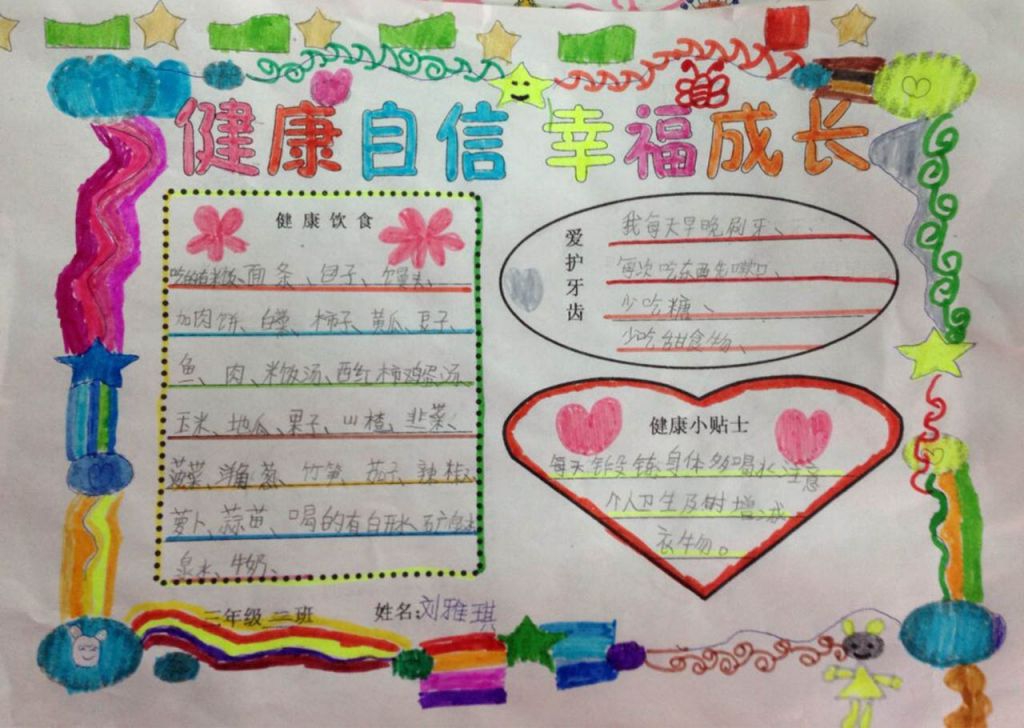 健康自信 幸福成长
健康饮食
吃的有米饭、面条、包子、馒头、
加肉饼、白菜、柿子、黄瓜、豆子、
鱼、肉、米饭汤、西红柿鸡蛋汤
玉米、地瓜、果子、山楂、韭菜、
菠菜、洋葱、竹笋、茄子、辣椒、
萝卜、蒜苗、喝的有白开水、矿
泉水、牛奶、
爱护牙齿
我每天早晚刷牙、
每次吃东西先嗽口、
少吃糖、
少吃甜食物、
健康小贴士
每天锻炼身体多喝水、注意
个人卫生及时增减
衣物。
三年级二班 姓名:刘雅琪